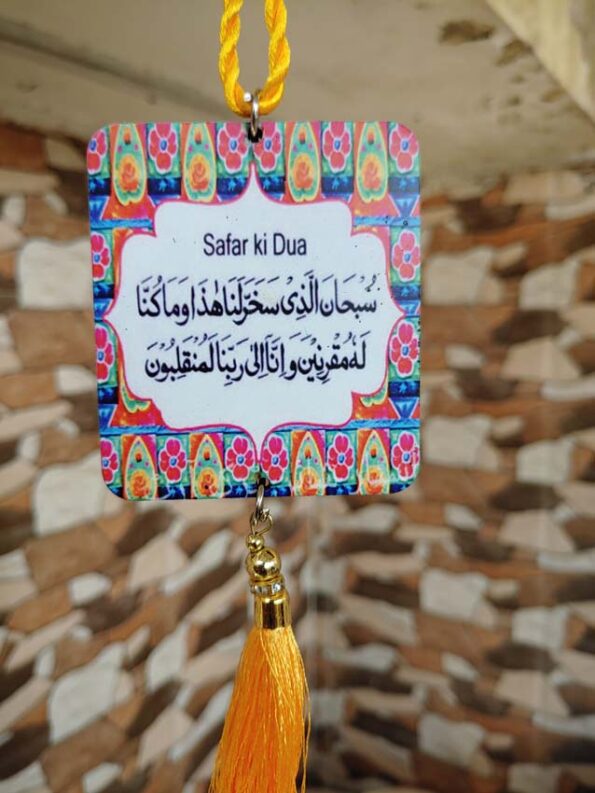 Safar ki Dua
سُبْحَانَ الَّذِیْ سَخَّرَ لَنَا هٰذَا وَمَا كُنَّا
لَهٗ مُقْرِنِیْنَ وَ اِنَّاۤ اِلٰی رَبِّنَا لَمُنْقَلِبُوْنَ